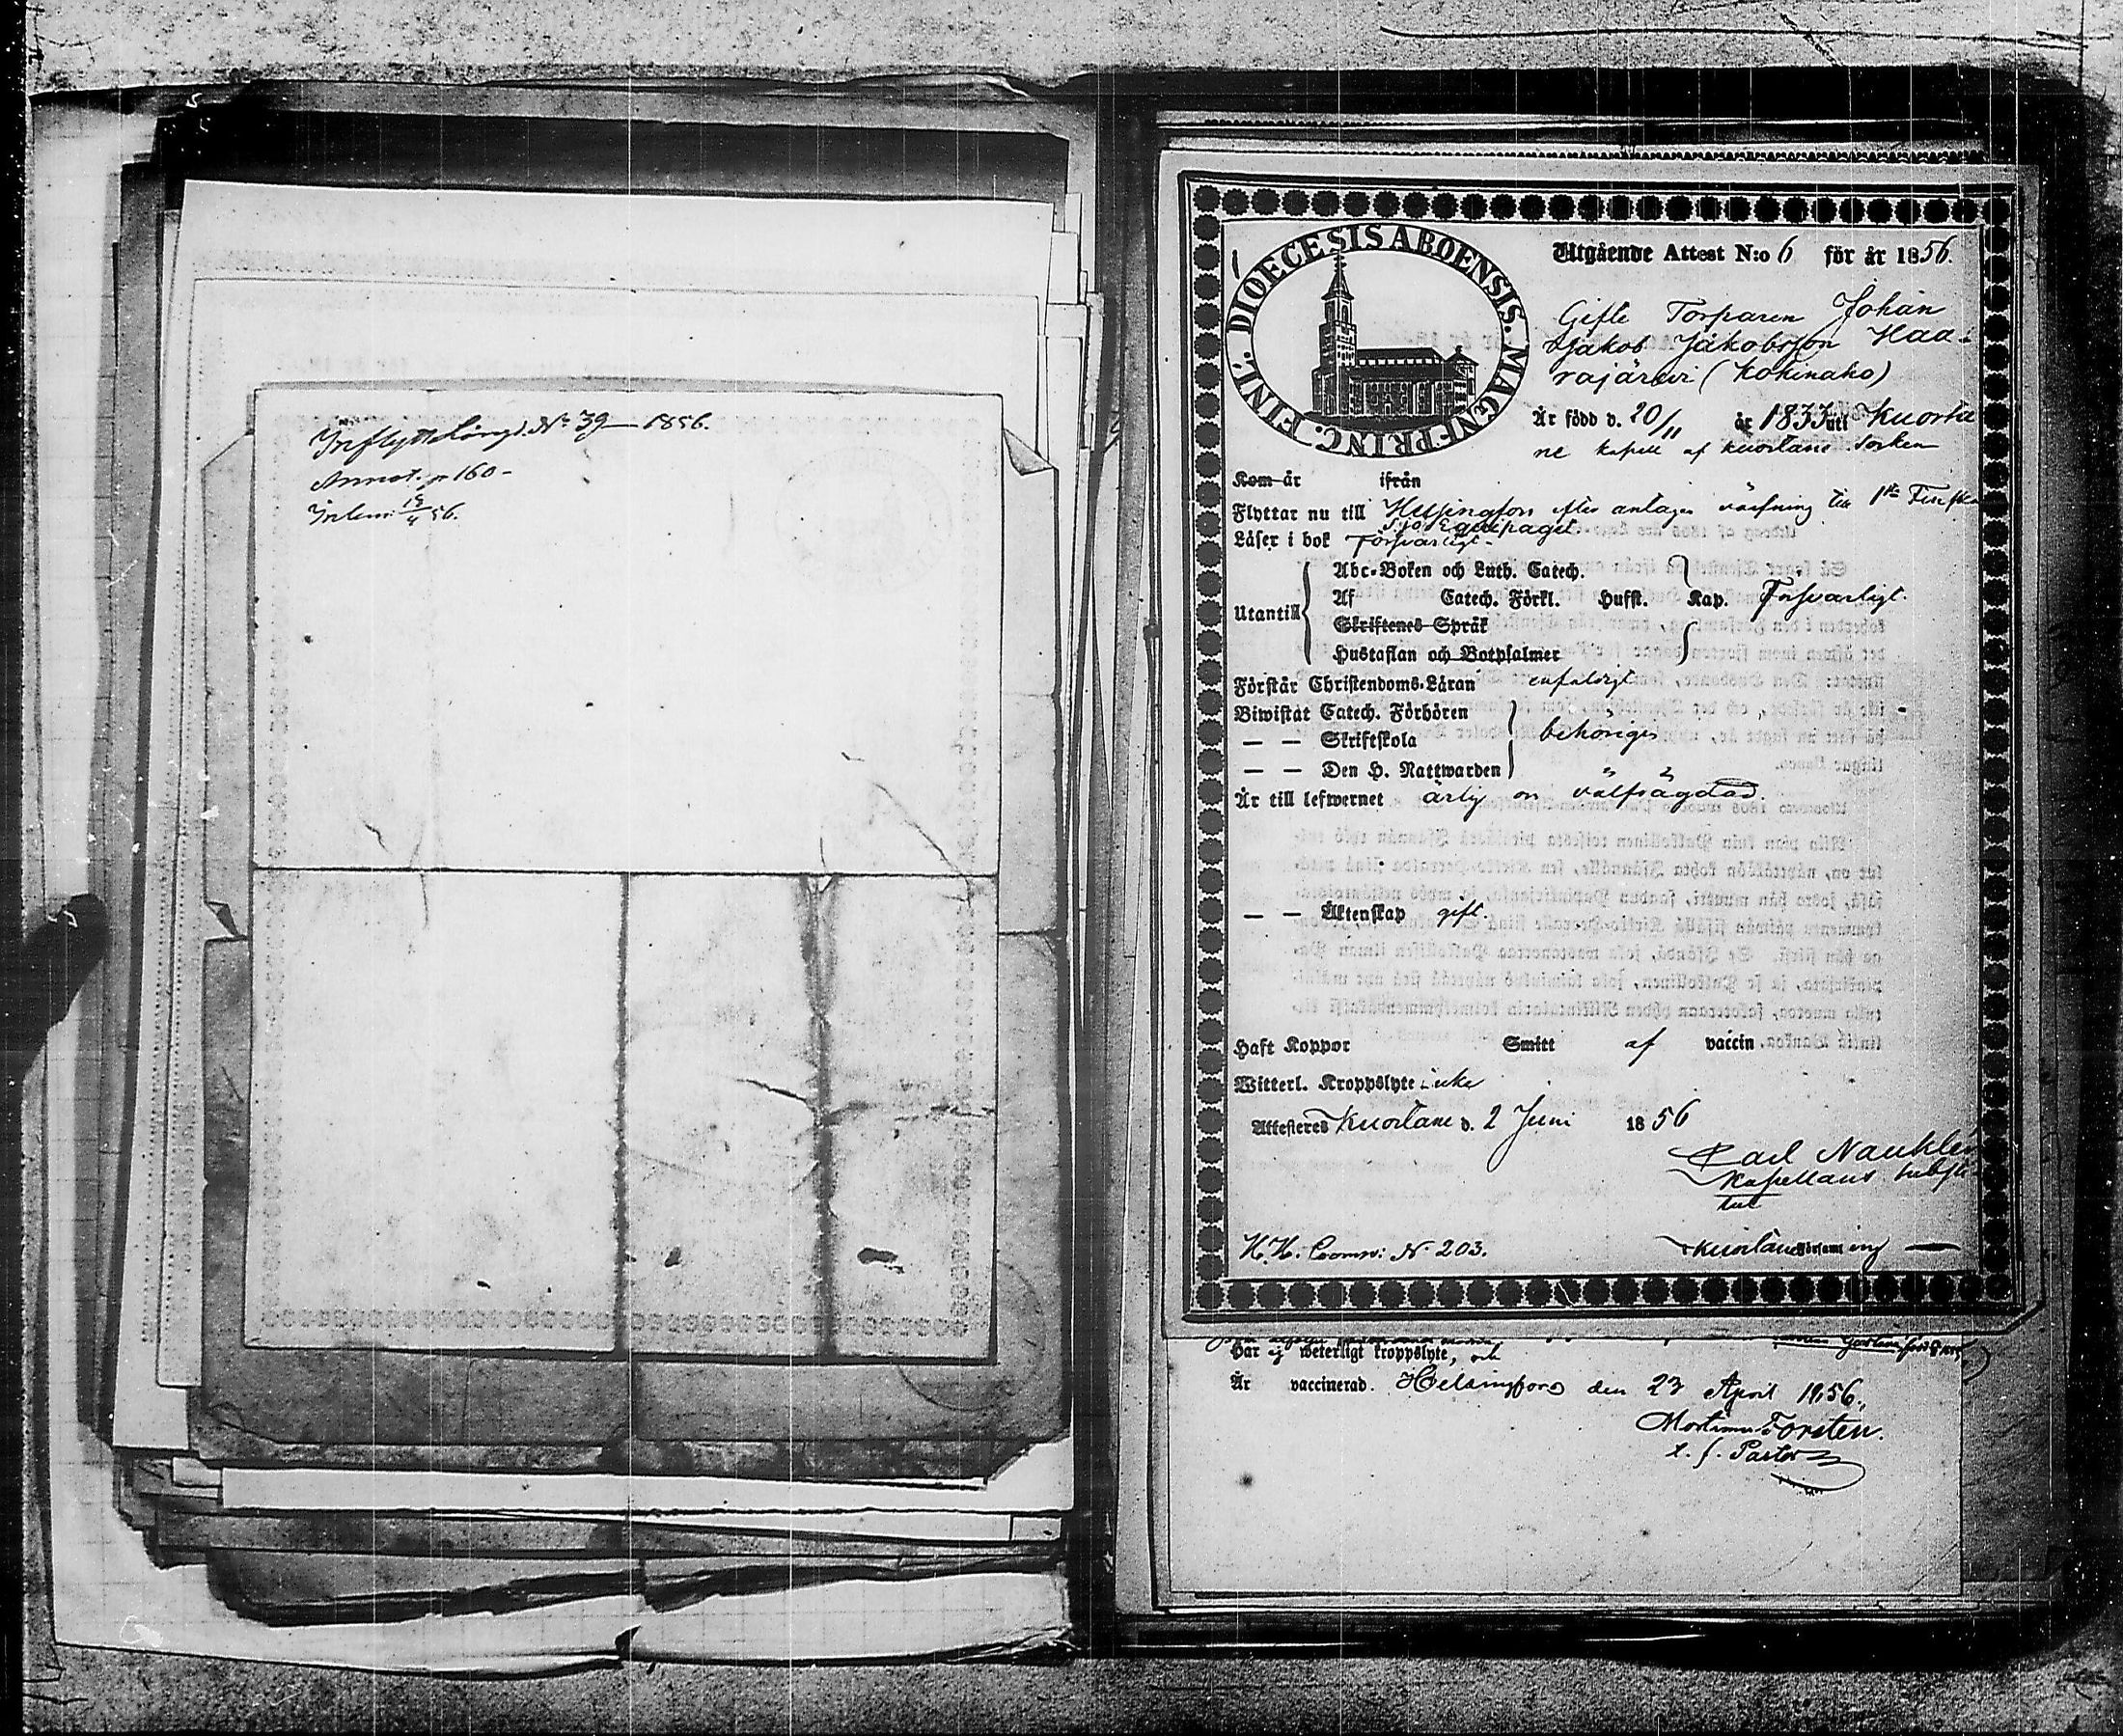 Inflytt Längd. No 39 — 1856.
Annot. p 160 -
Inlem: 19/4 56.
DIOECESIS ABOENSIS. MAGNI PRINC. FINL.
Utgående Attest N:o 6 för år 1856.
Gifte Torparen Johan
Jakob Jakobsson Haa-
rajärwi (Kokinaho)
Är född d. 20/11 år 1833 uti Kuorta
ne kapell af Kuortane Socken
Kom år ifrån
Flyttar nu till Helsingfors efter antagen värfning till 1sta Finska
Sjö Equipaget.
Läser i bok Försvarligt.
Utantill
Abc-Boken och Luth. Catech.
Af Catech. Förkl. Hufst. Kap. Försvarligt.
Skriftenes Språk
Hustaflan och Botpsalmer
Förstår Christendoms-Läran enfaldigt
Biwistat Catech. Förhören
— — Skriftskola behörigen
— — Den H. Nattwarden
Är till lefwernet ärlig och välfrägdad.
— — Äktenskap gift.
Haft Koppor Smitt af vaccin.
Witterl. Kroppslyte icke
Attesteras Kuortane d. 2 Juni 1856
Carl Naukler
Kapellans substi
tut
H.H. Comm: No 203.
Kuortane Församling
Har ej weterligt kroppslyte, och
Är vaccinerad. Helsingfors den 23 April 1856.
Forsten.
t. f. Pastor